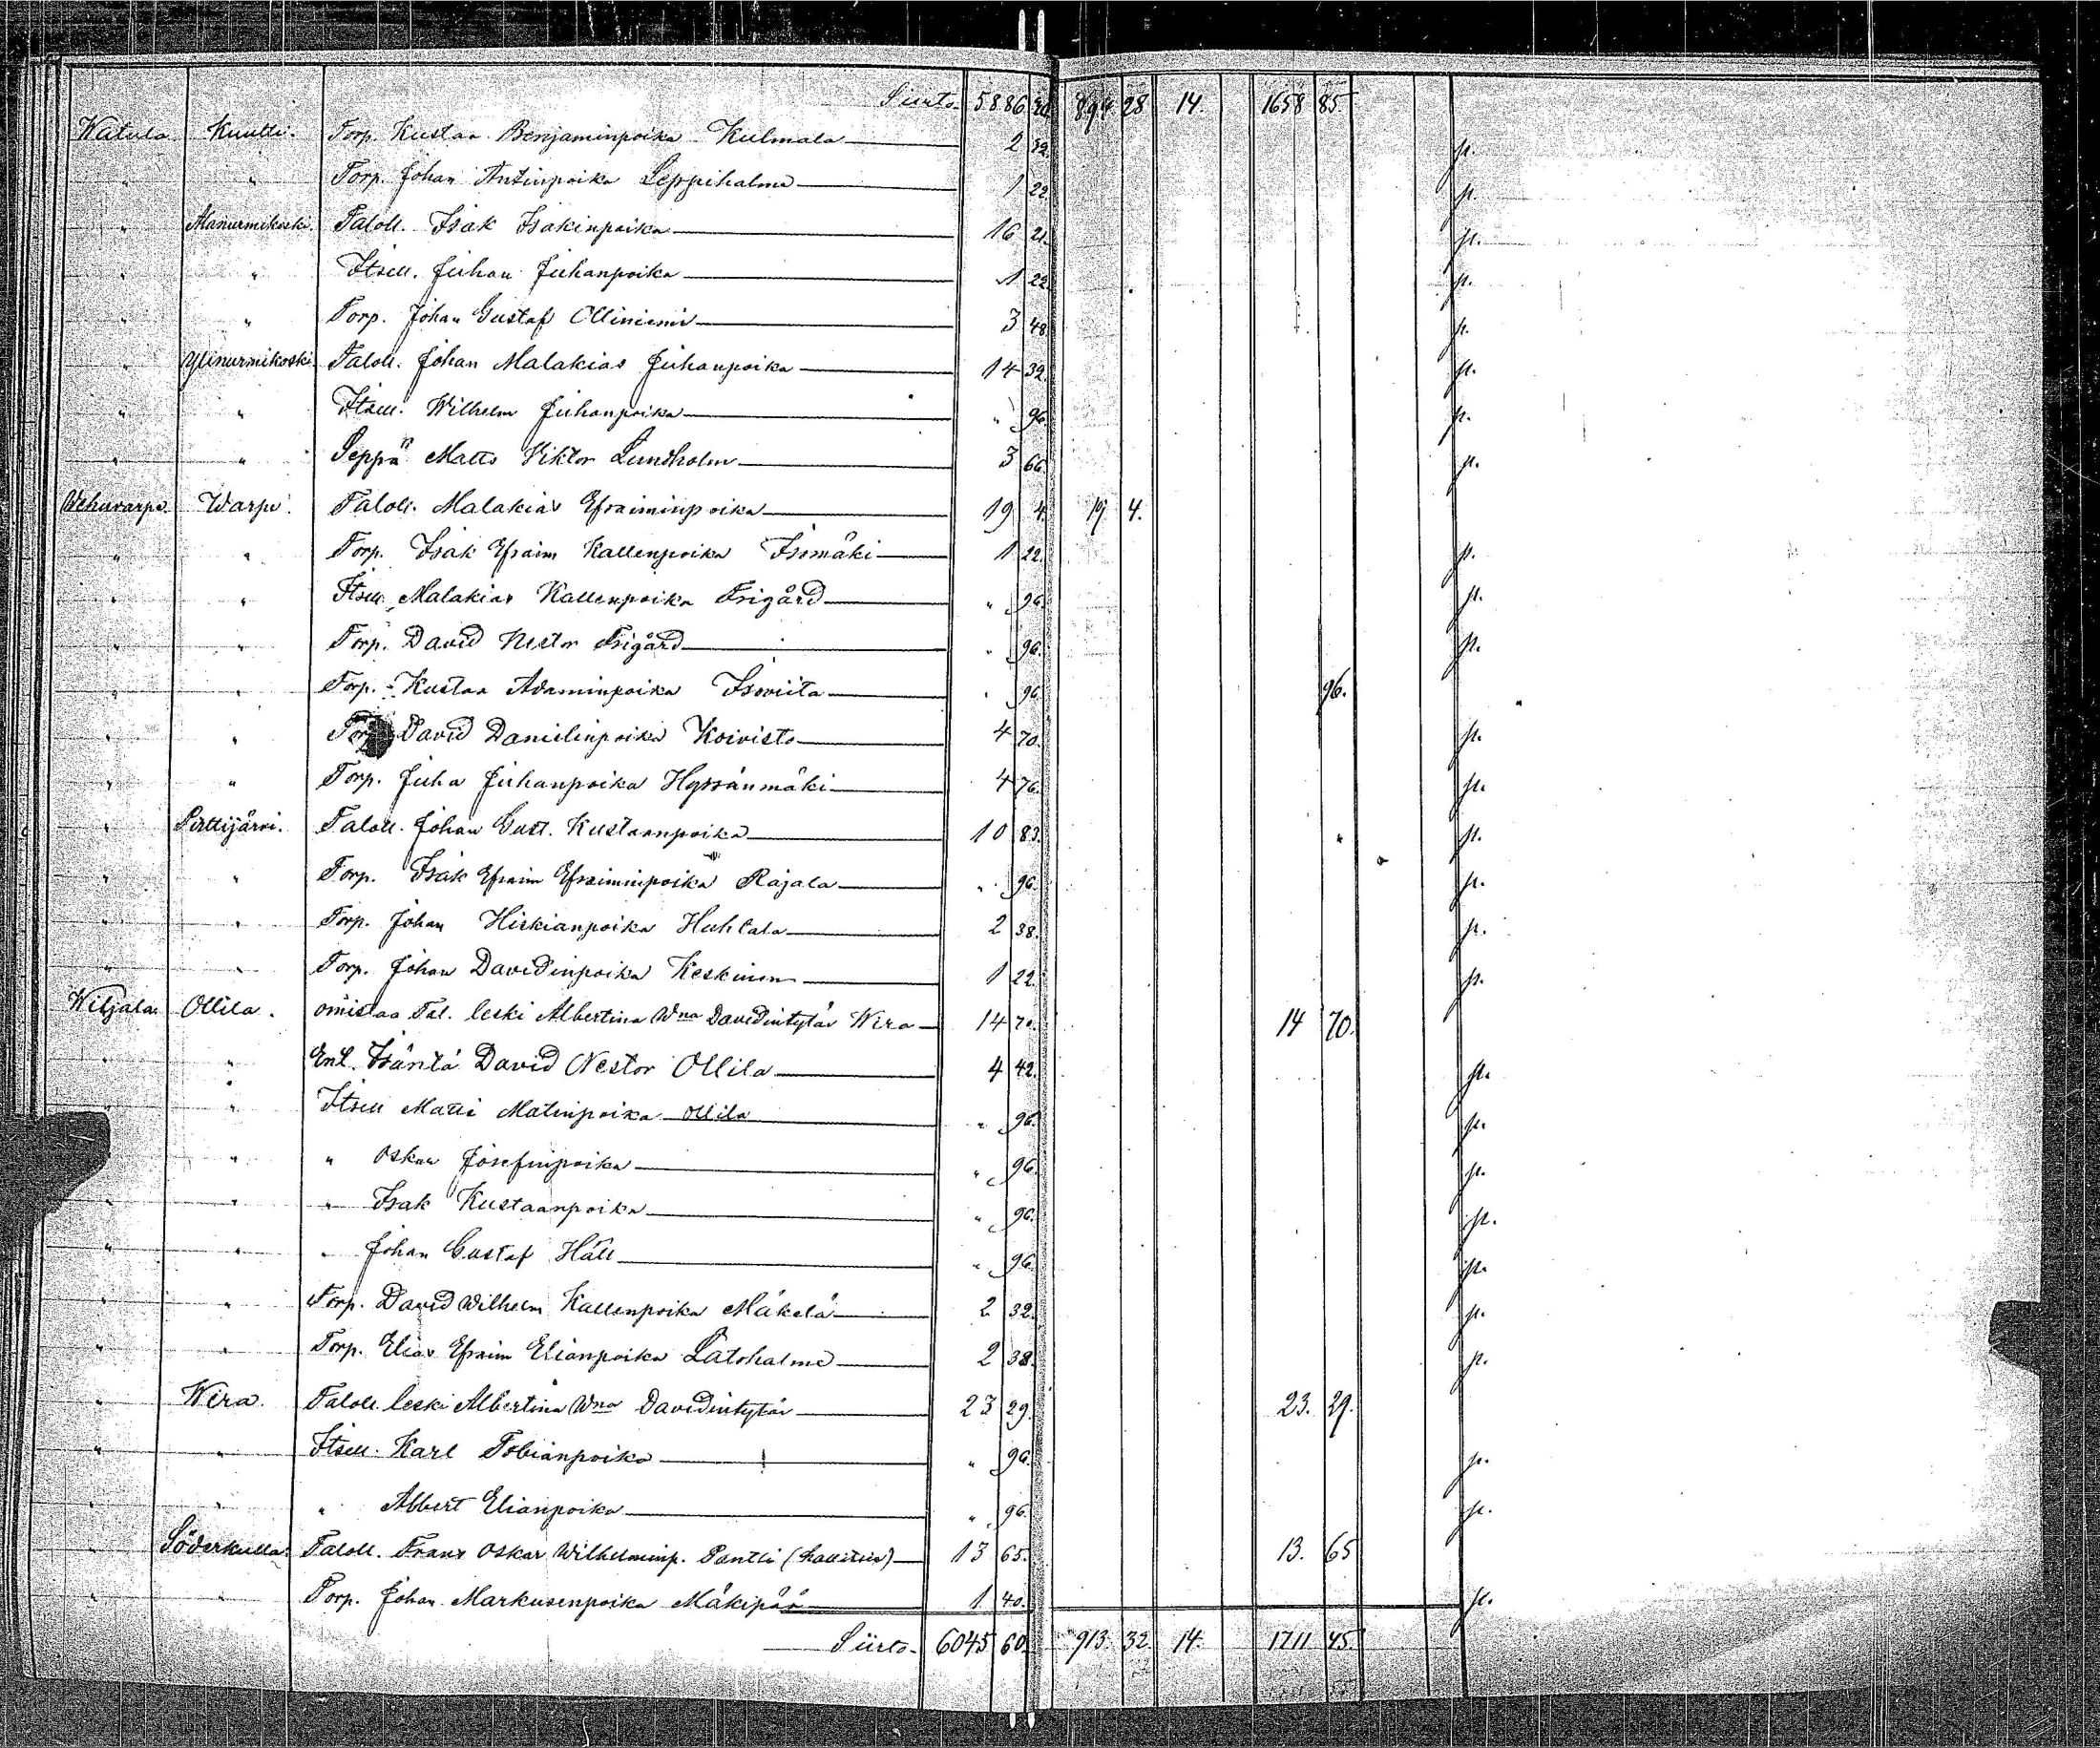 Siirto 5886 20 894 28 14. 1658 85
Watula Kuutti. Torp. Kustaa Benjaminpoika Kulmala 2 32 p.
" " Torp. Johan Antinpoika Leppihalme 1 22 p.
" Alanurmikoski. Taloll. Isak Isakinpoika 16 21. p.
" " Itsell. Juhan Juhanpoika 1 22 p.
" " Torp. Johan Gustaf Olliniemi 3 48 p.
" Ylinurmikoski Taloll. Johan Malakias Juhanpoika 14 32. p.
" " Itsell. Wilhelm Juhanpoika " 96 p.
" " Seppä Matts Viktor Lundholm 3 66 p.
Wehuvarpe. Warpe. Taloll. Malakias Efraiminpoika 19 4. 19 4.
" " Torp. Isak Efraim Kallenpoika Isomäki 1 22. p.
" " Itsell. Malakias Kallenpoika Frigård " 96 p.
" " Torp. David Nestor Frigård " 96. p.
" " Torp. Kustaa Adaminpoika Isoviita " 96. 96.
" " Torp. David Danielinpoika Koivisto 4 70. p.
" " Torp. Juha Juhanpoika Hyrsänmäki 4 76. p.
" Pirttijärvi. Taloll. Johan Gust. Kustaanpoika 10 83. p.
" " Torp. Isak Efraim Efraiminpoika Rajala " 96. p.
" " Torp. Johan Hiskianpoika Huhtala 2 38. p.
" " Torp. Johan Davidinpoika Keskinen 1 22. p.
Wiljala Ollila. omistaa Tal. leski Albertina Wna Davidintytär Wira 14 70. 14 70.
" " Ent. Isäntä David Nestor Ollila 4 42. p.
" " Itsell Matti Matinpoika Ollila " 96. p.
" " " Oskar Josefinpoika " 96. p.
" " " Isak Kustaanpoika " 96. p.
" " " Johan Gustaf Häll " 96. p.
" " Torp. David Wilhelm Kallenpoika Mäkelä 2 32. p.
" " Torp. Elias Efraim Elianpoika Latohalme 2 38. p.
" Wira. Taloll. leski Albertina Wna Davidintytär 23 29. 23. 29.
" " Itsell. Karl Tobianpoika " 96. p.
" " " Albert Elianpoika " 96. p.
" Söderkulla. Taloll. Frans Oskar Wilhelminp. Pantti 13 65. 13. 65
" " Torp. Johan Markusenpoika Mäkipää 1 40. p.
Siirto 6045 60. 913. 32. 14. 1711 45.